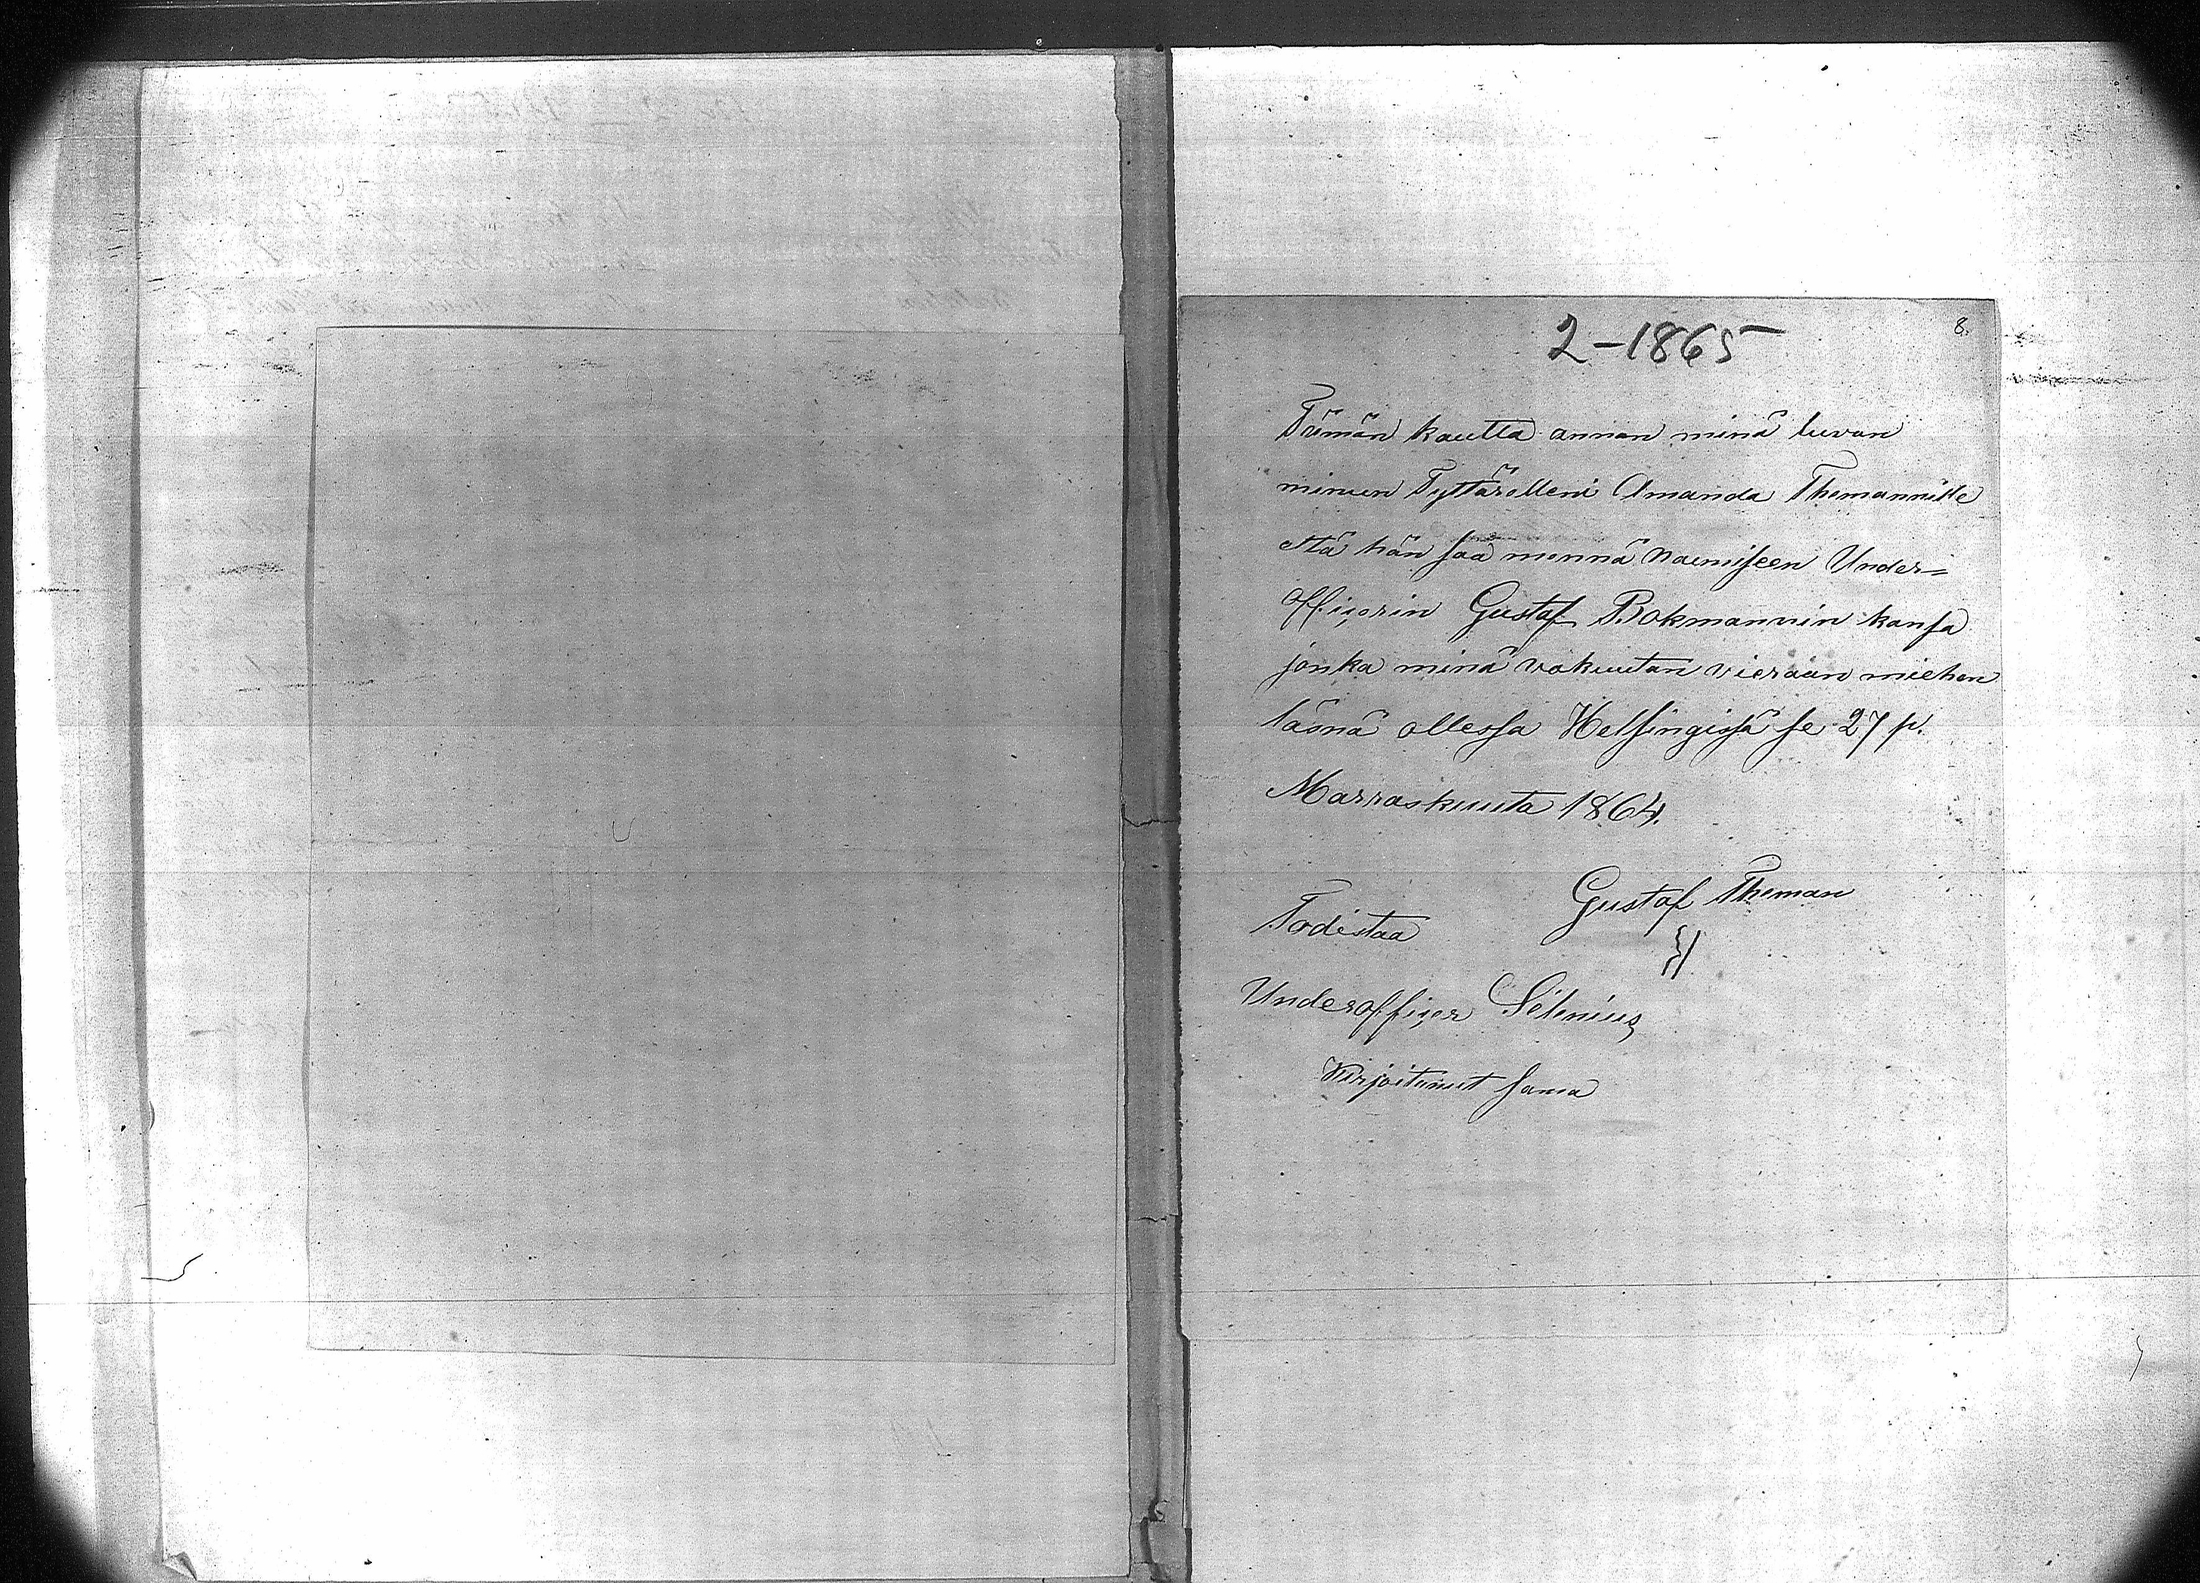 8.
2-1865
Tämän kautta annan minä luvan
minun Tyttärelleni Amanda Themannille
että hän saa mennä naimiseen Under=
officerin Gustaf Bokmannin kansa
jonka minä vakuutan vieraan miehen
läsnä ollessa Helsingissä se 27 p.
Marraskuuta 1864.
Gustaf Theman
Todistaa
Underofficer Selenius
Kirjoitanut sama